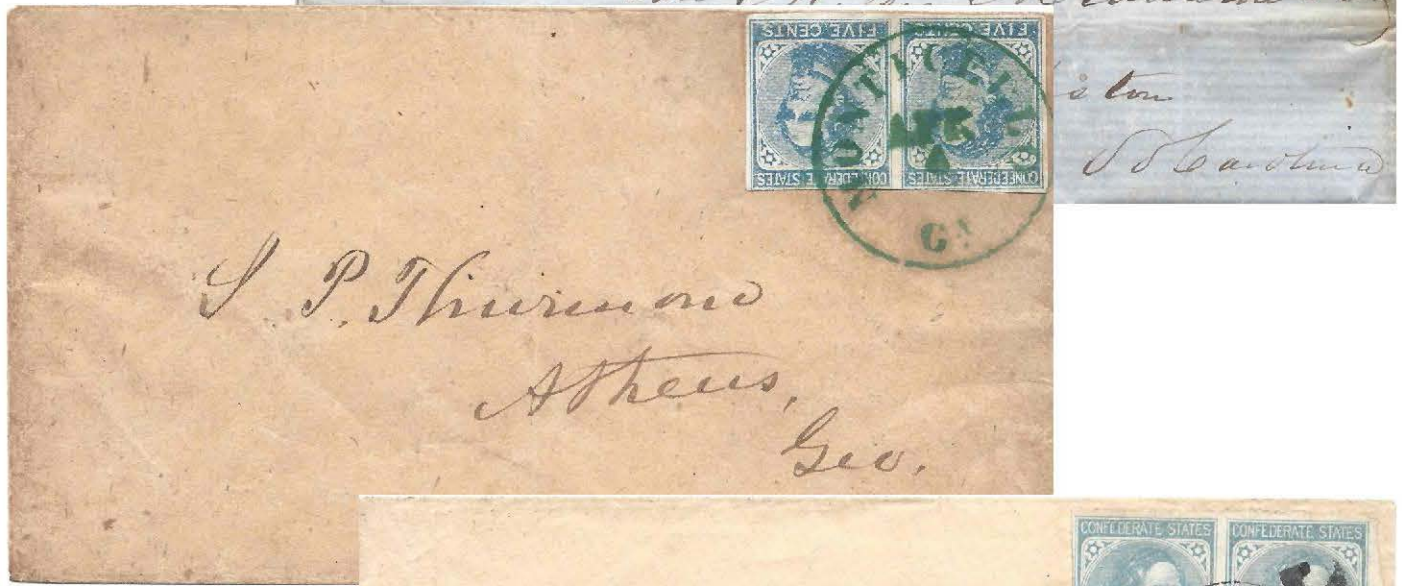 FIVE CENTS FIVE CENTS
CONFEDERATE STATES CONFEDERATE STATES
MONTICELLO
GA
ston
So Carolina
S. P. Thurmond
Athens,
Geo.
CONFEDERATE STATES CONFEDERATE STATES